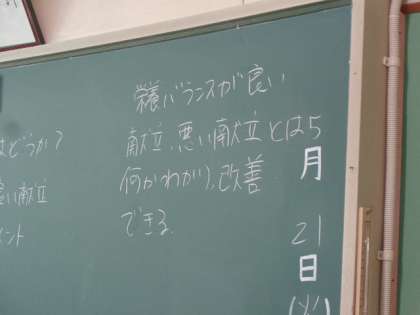 5月21日(火)
栄養バランスが良い
献立、悪い献立とは
何かわかり、改善
できる。
はどうか?
悪い献立
メント